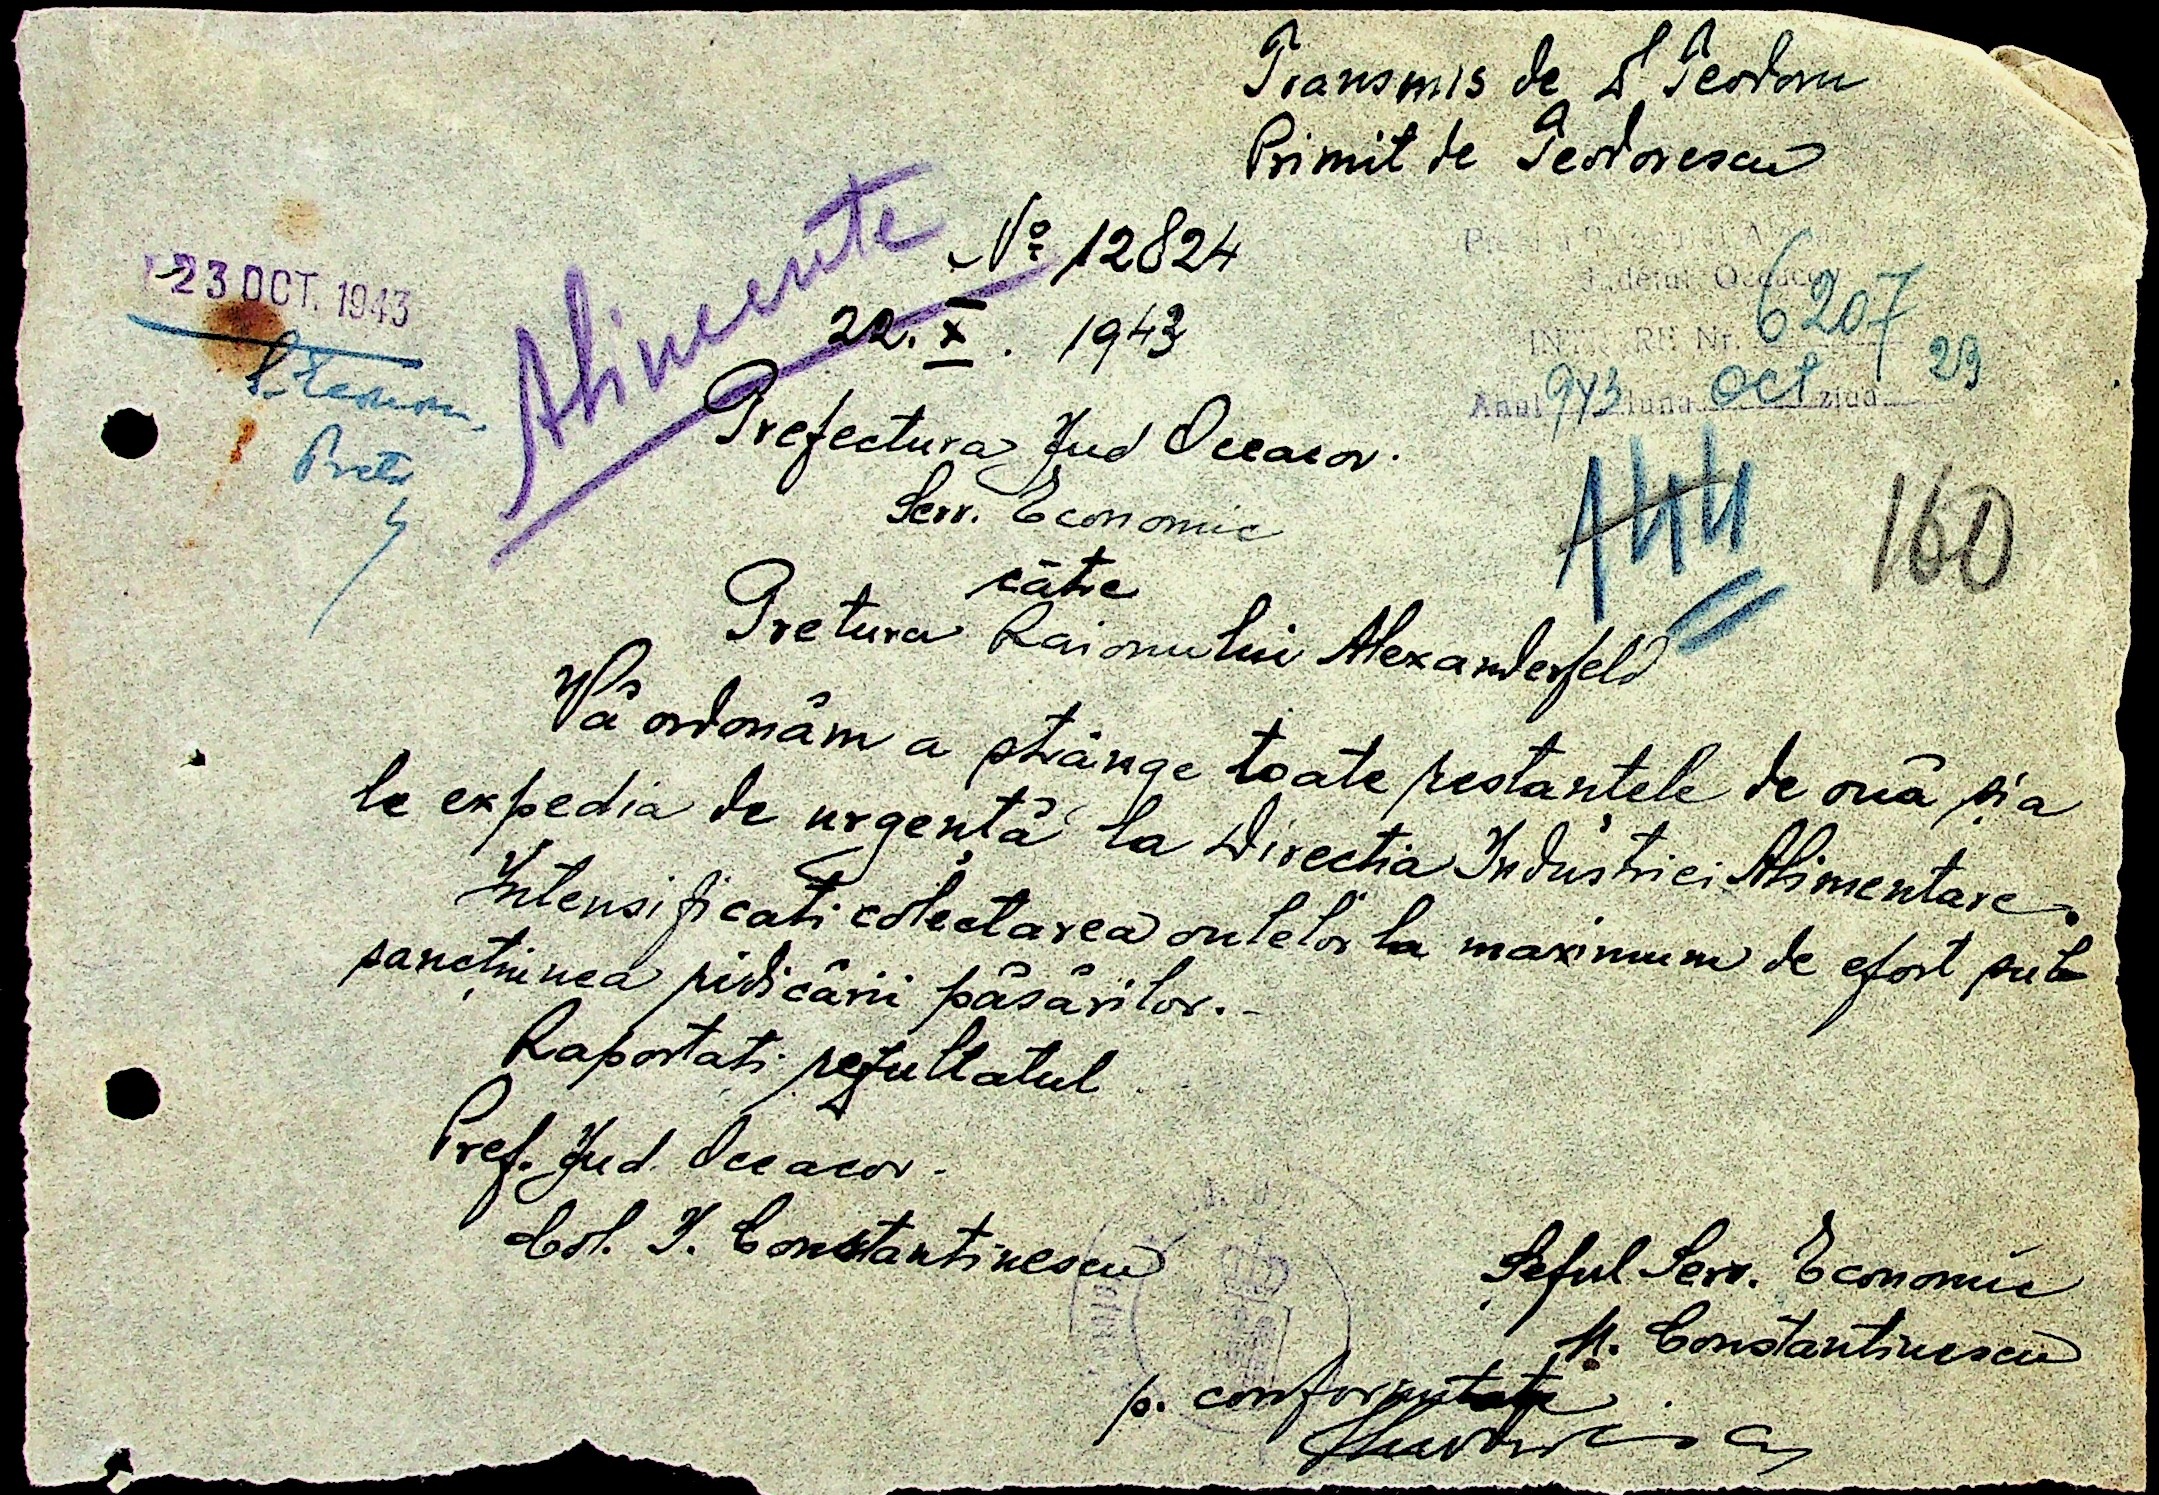 Transmis de D Teodoru
Primit de Teodorescu
Alimente
No 12824
23 OCT. 1943
22. X. 1943
Județul Oceacov
INTRARE Nr. 6207
Anul 943 luna Oct ziua 23
Prefectura Jud Oceacov.
Serv. Economic
144
160
către
Pretura Raionului Alexanderfeld
Vă ordonăm a strânge toate restantele de ouă și a
le expedia de urgență la Directia Industriei Alimentare.
Intensificati colectarea ouelor la maximum de efort sub
sancțiunea ridicării păsărilor.-
Raportati rezultatul
Pref. Jud. Oceacov.
Col. I. Constantinescu
Șeful Serv. Economic
M. Constantinescu
p. conformitate